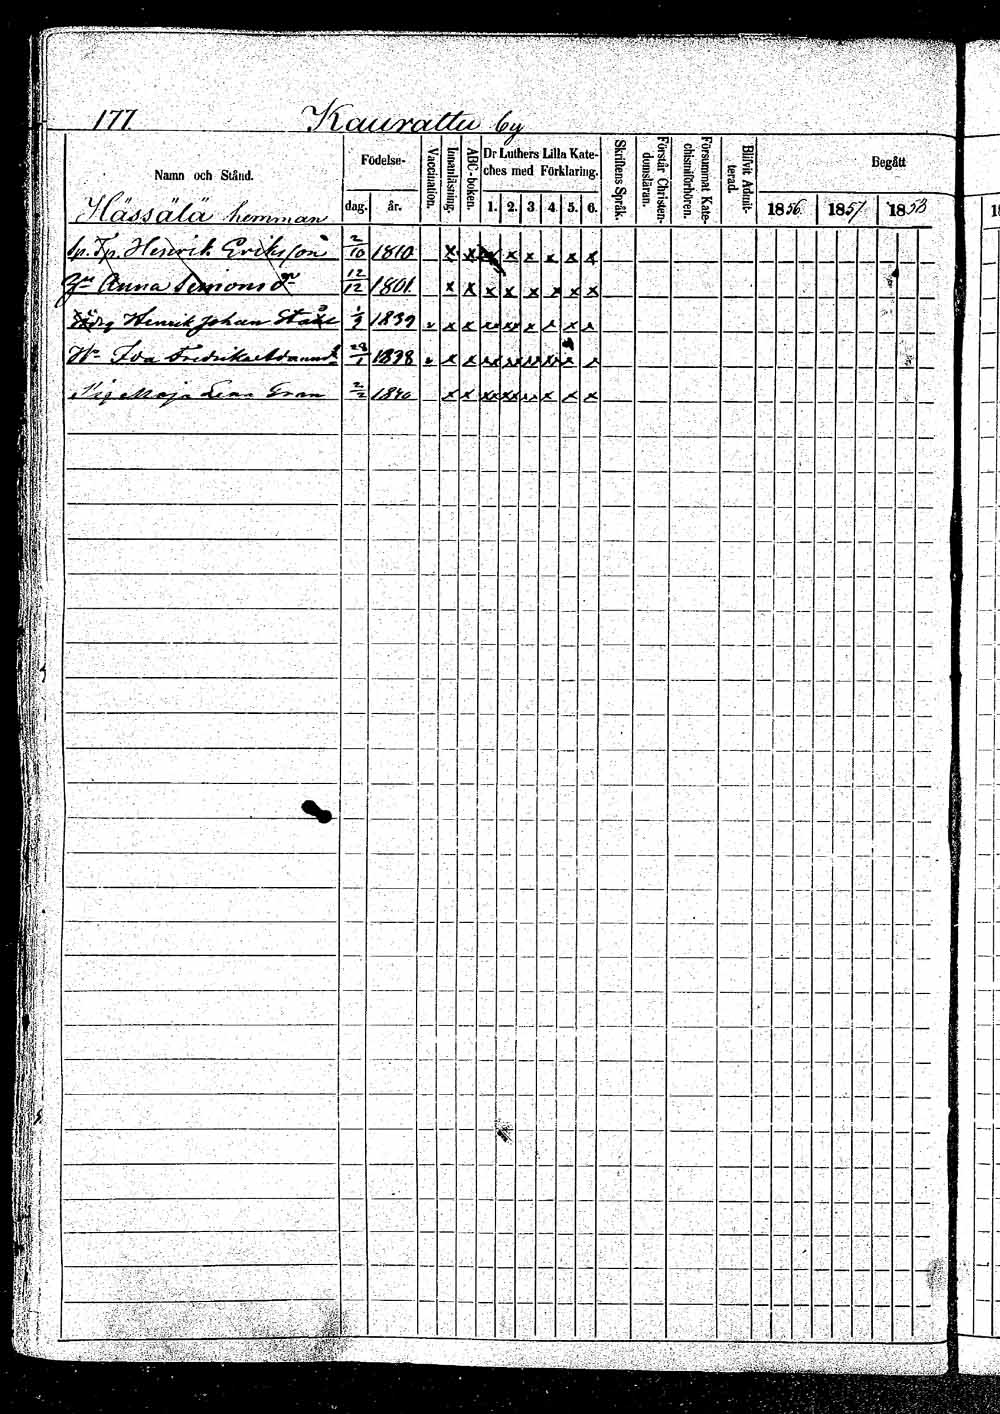 177. Kaurattu by
Namn och Stånd.
Födelse-
dag. år.
Vaccination.
Innanläsning.
ABC-boken.
Dr Luthers Lilla Kate-
ches med Förklaring.
1. 2. 3 4. 5. 6.
Skriftens Språk.
Förstår Christen-
domsläran.
Försummat Kate-
chismiförhören.
Blifvit Admit-
terad.
Begått
1856. 1857. 1858
Hässälä hemman
Sp. Tp. Henrik Eriksson 2/10 1810
Anna Simonsdr 12/12 1801
Henrik Johan 1/9 1839
Hu Eva Fredrika 28/1 1838
Maja Lena Gran 2/2 1840